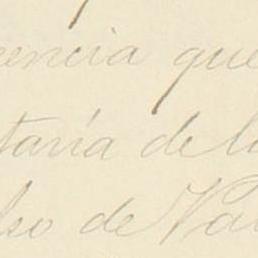 encia que
taría de l
lso de Va